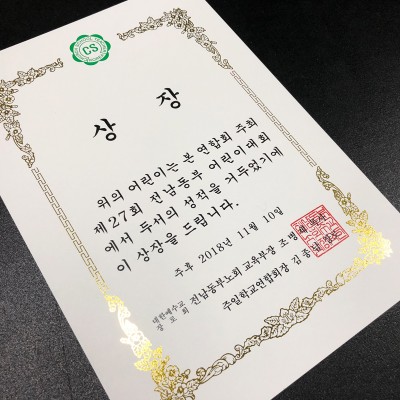 CS
상 장
위의 어린이는 본 연합회 주최
제27회 전남동부 어린이대회
에서 두서의 성적을 거두었기에
이 상장을 드립니다.
주후 2018년 11월 10일
대한예수교
장로회 전남동부노회 교육부장 조병
주일학교연합회장 김종